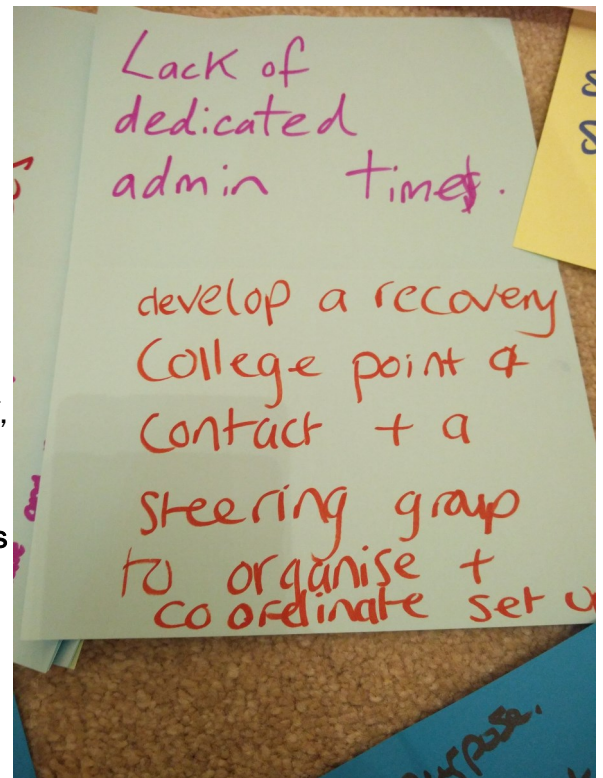 Lack of
dedicated
admin time.
develop a recovery
College point of
contact + a
steering group
to organise +
coordinate set
purpose.